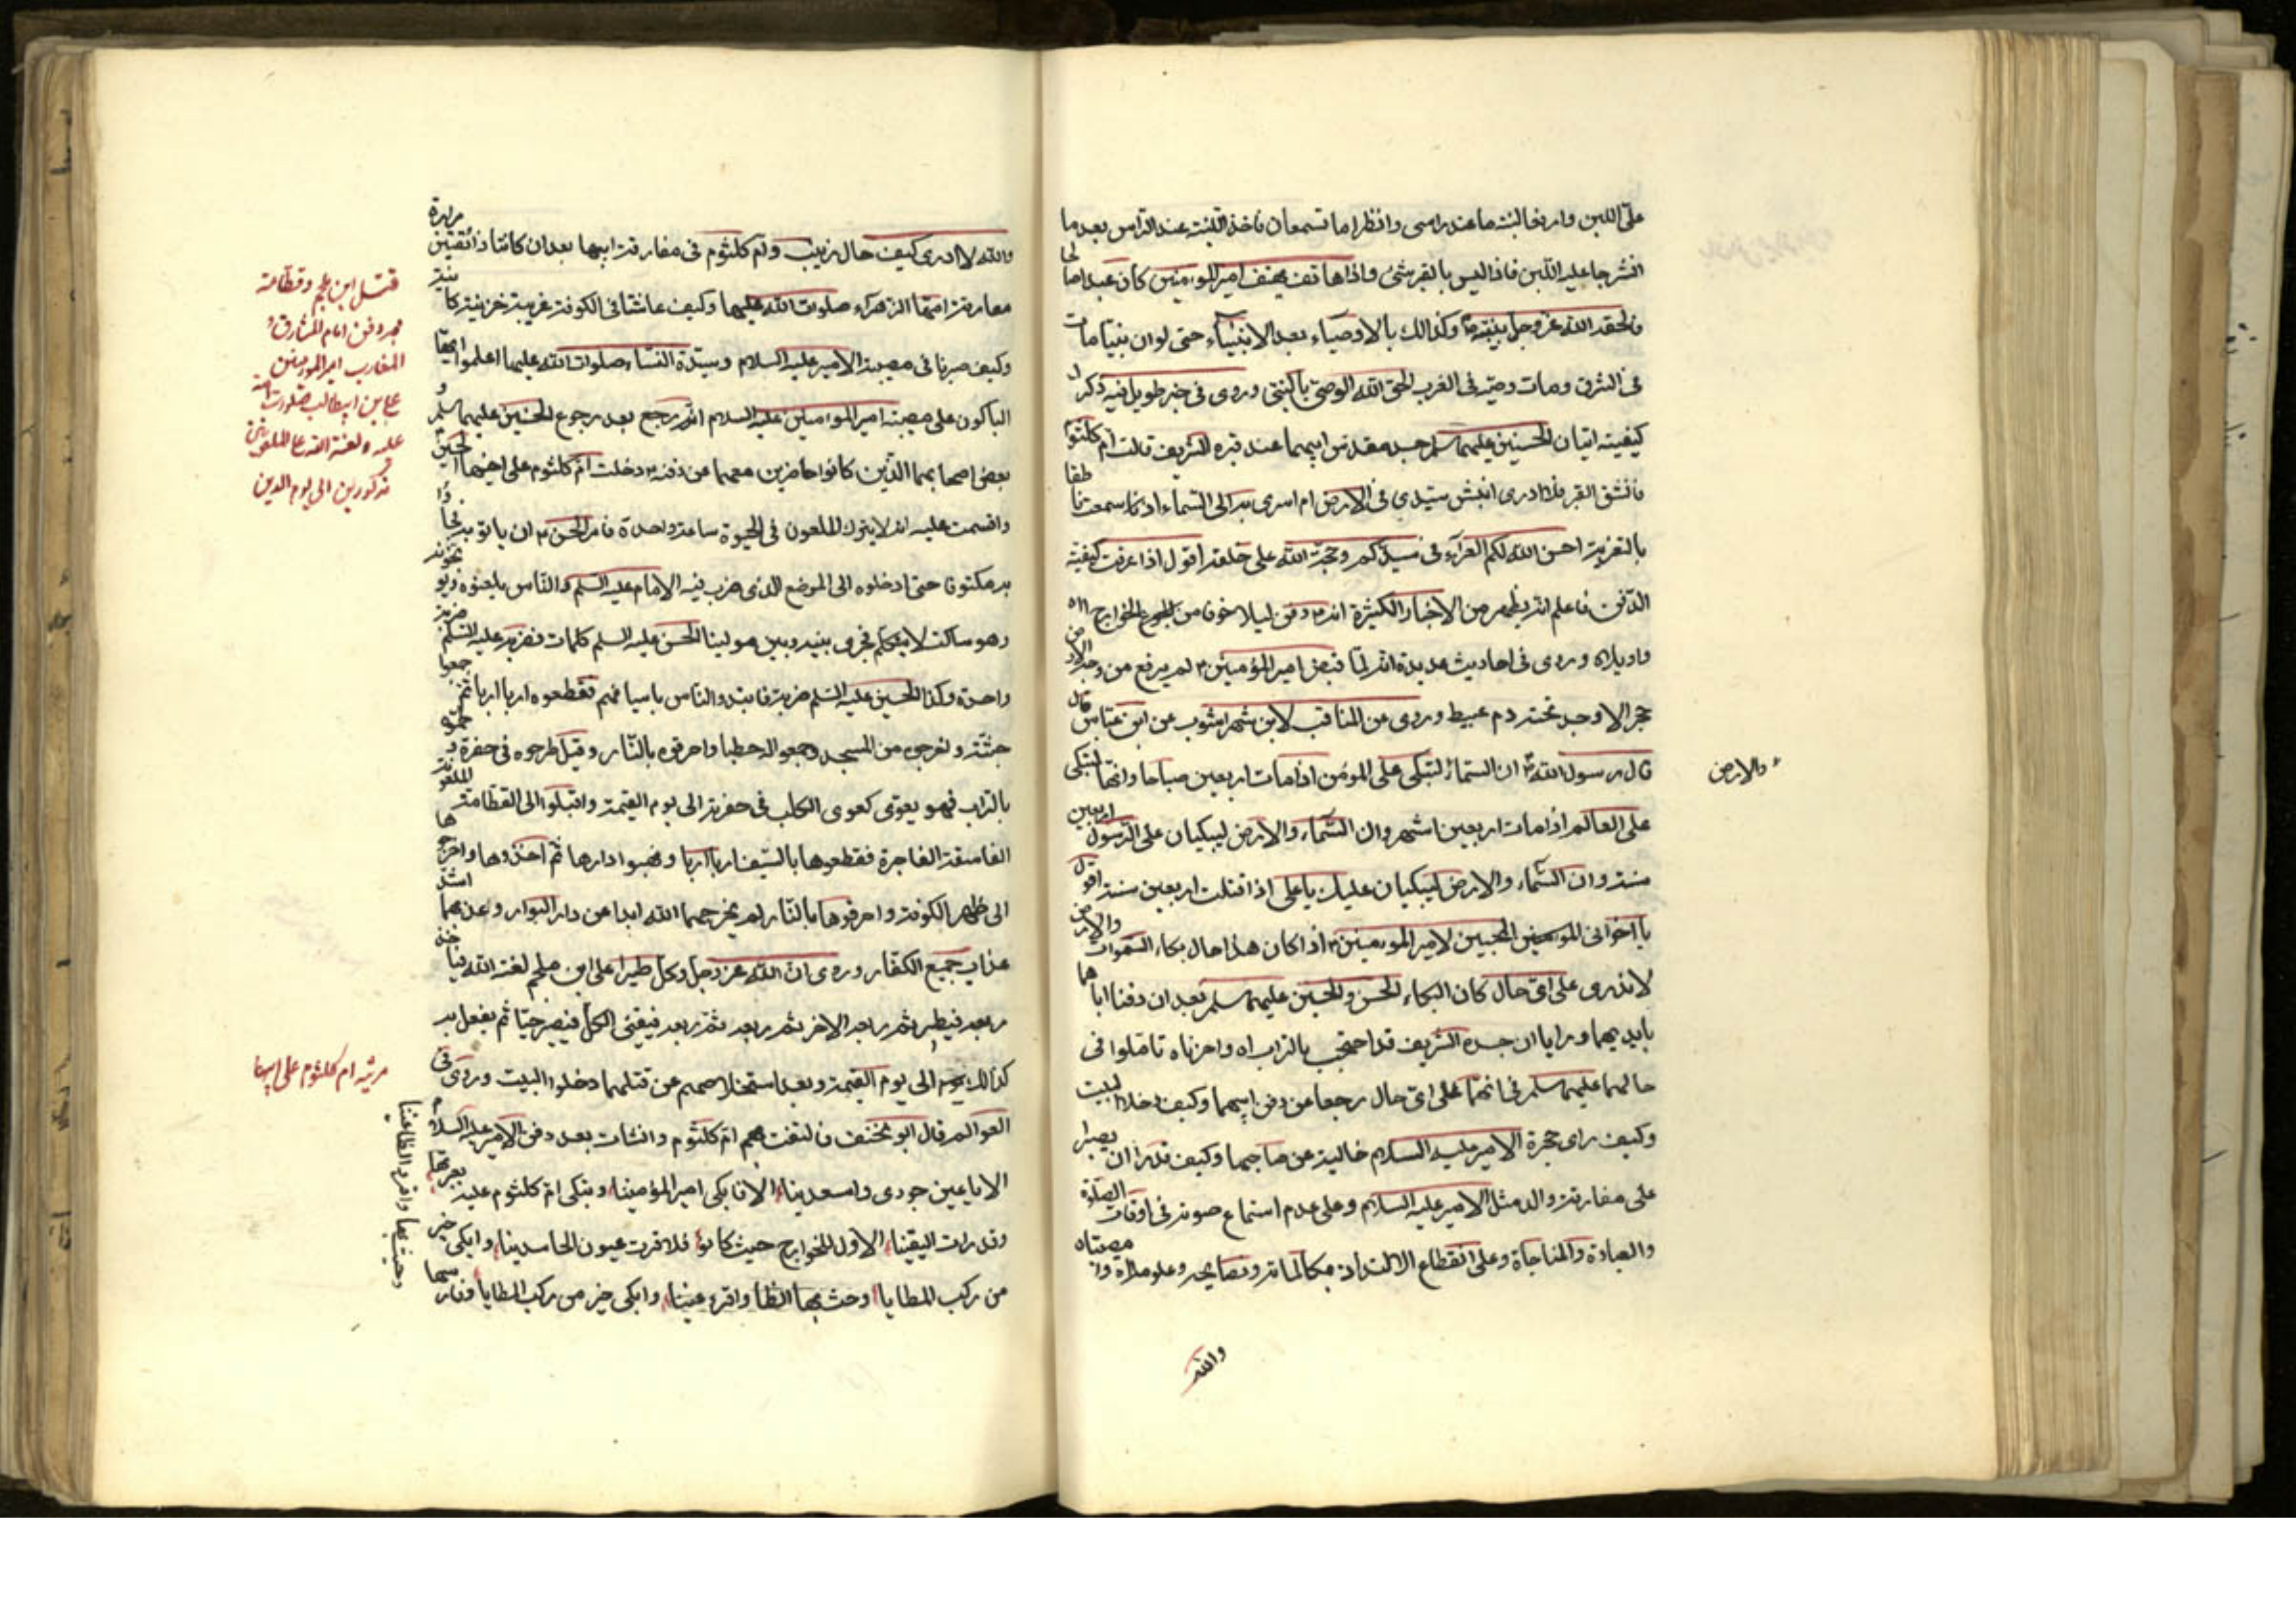 علی اللبن وارفعا لبنة ما عند راسی وانظرا ما تسمعان فاخذ اللبنة عند الراس بعد ما
اشرجا علیه اللبن فاذا لیس بالقبر شئ واذا هاتف یهتف امیر المومنین کان عبدا صالحا
فالحقه الله عز وجل بنبیه وکذالك بالاوصیاء بعد الانبیاء حتی لو ان نبیا مات
فی الشرق ومات وصیه فی الغرب لحق الله الوصی بالنبی وروی فی خبر طویل فیه ذکر
کیفیة اتیان الحسنین علیهما سلم جسد مقدس ابیهما عند قبره الشریف قالت ام کلثوم
فانشق القبر فلا ادری انبش سیدی فی الارض ام اسری به الی السماء اذ سمعت ناطقا
بالتعزیة احسن الله لکم العزآء فی سیدکم وحجة الله علی خلقه اقول اذا عرفت کیفیة
الدفن فاعلم انه یظهر من الاخبار الکثیرة انه دفن لیلا خوفا من الخوارج اه
واویلاه وروی فی احادیث عدیدة انه لما قبض امیر المؤمنین لم یرفع من وجه الارض
حجر الا وجد تحته دم عبیط وروی عن المناقب لابن شهراشوب عن ابن عباس قال
قال رسول الله ان السماء لتبکی علی المومن اذا مات اربعین صباحا وانها لتبکی
والارض
علی العالم اذا مات اربعین شهر وان السماء والارض لیبکیان علی الرسول اربعین
سنة وان السماء والارض لیبکیان علیك یا علی اذا قتلت اربعین سنة اقول
یا اخوانی المومنین المحبین لامیر المومنین اذا کان هذا حال بکاء السموات والارض
لا ندری علی ای حال کان البکاء للحسن والحسین علیهما سلم بعد ان دفنا اباهما
بایدیهما ورایا ان جسده الشریف قد احتجب بالتراب اه واحزناه تاملوا فی
حالهما علیهما سلم فی انهما علی ای حال رجعا من دفن ابیهما وکیف دخلا البیت
وکیف رای حجرة الامیر علیه السلام خالیة من صاحبها وکیف قدرا ان یصبرا
علی مفارقة والد مثل الامیر علیه السلام وعلی عدم استماع صوته فی اوقات الصلوة
والعبادة والمناجاة وعلی انقطاع الالتذاذ بمکالماته ونصایحه وعلومه اه وا مصیبتاه
والله
والله لا ادری کیف حال زینب وام کلثوم فی مفارقة ابیها بعد ان کانتا ذائقتین مرارة
مفارقة امهما الزهرآء صلوات الله علیها وکیف عاشتا فی الکوفة غریبة حزینة
وکیف صبرنا فی مصیبة الامیر علیه السلام وسیدة النساء صلوات الله علیهما اعلموا ایها
الباکون علی مصیبة امیر المومنین علیه السلام انه رجع بعد رجوع الحسنین علیهما سلم و
بعض اصحابهما الذین کانوا حاضرین معهما عن دفنه دخلت ام کلثوم علی اخیها الحسن
واقسمت علیه ان لا یترك الملعون فی الحیوة ساعة واحدة فامر الحسن ان یاتوا به فجاؤا
به مکتوفا حتی ادخلوه الی الموضع الذی ضرب فیه الامام علیه السلم والناس یلعنوه ویوبخونه
وهو ساکت لا یتکلم فجری بینه وبین مولینا الحسن علیه السلم کلمات فضربه علیه السلم ضربة
واحدة وکذا الحسین علیه السلم ضربة فابتدر الناس باسیافهم فقطعوه اربا اربا ثم جمعوا
جثته واخرجوه من المسجد وجمعوا له حطبا واحرقوه بالنار وقیل طرحوه فی حفرة وطموه
بالتراب فهو یعوی کعوی الکلب فی حفرته الی یوم القیمة واقبلوا الی القطامة الملعونة
الفاسقة الفاجرة فقطعوها بالسیف اربا اربا ونهبوا دارها ثم اخذوها واخرجوها
الی ظهر الکوفة واحرقوها بالنار لم یخرجهما الله ابدا من دار البوار وعذبهما اشد
عذاب جمیع الکفار وروی ان الله عز وجل وکل طیرا علی ابن ملجم لعنة الله فیاخذ
ربعه فیطیر ثم ربعه الاخر ثم ربعه ثم ربعه فیقئ الکل فیصیر حیا ثم یفعل به
کذالك الی یوم القیمة وبعد استخلاصهم عن قتلهما دخلوا البیت وروی فی
العوالم قال ابو مخنف فالتفت بهم ام کلثوم وانشات بعد دفن الامیر علیه السلام
الا یا عین جودی واسعدینا الا فابکی امیر المؤمنینا وتبکی ام کلثوم علیه بعبرتها
وقد رات الیقینا الا قل للخوارج حیث کانوا فلا قرت عیون الحاسدینا وابکی خیر
من رکب المطایا وحث بها الظا واقر عینا وابکی خیر من رکب المطایا وفارسها
وحث بها واقر الظاعنینا
قتل ابن ملجم وقطامه
بعد دفن امام المشارق و
المغارب امیر المومنین
علی بن ابیطالب صلوات الله
علیه ولعنة الله علی الملعونین
مذکورین الی یوم الدین
مرثیه ام کلثوم علی ابیها